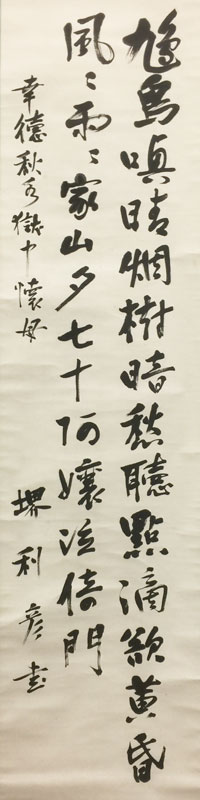 鳩鳥嗔晴烟樹暗愁聽點滴欲黄昏
風〻雨〻家山夕七十阿孃泣倚門
幸徳秋水獄中懐母
堺利彦書